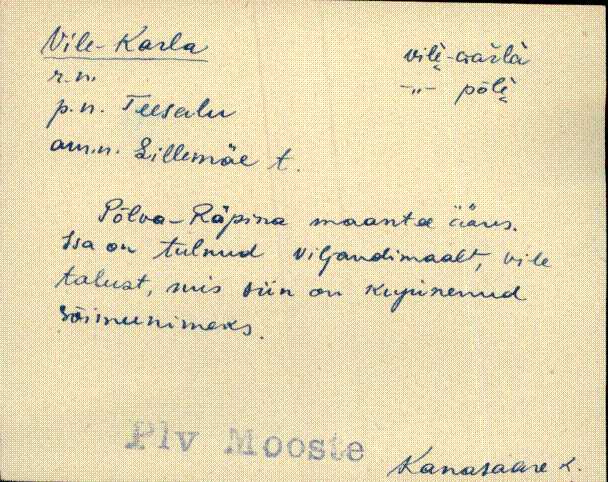 Vile-Karla
vilè̬-kàrlà
r.n.
-„- põlè̬
p.n. Teesalu
am.n. Lillemäe t.
Põlva-Räpina maantee ääres.
Isa on tulnud Viljandimaalt, Vile
talust, mis siin on kujunenud
sõimunimeks.
Plv Mooste
Kanasaare L.